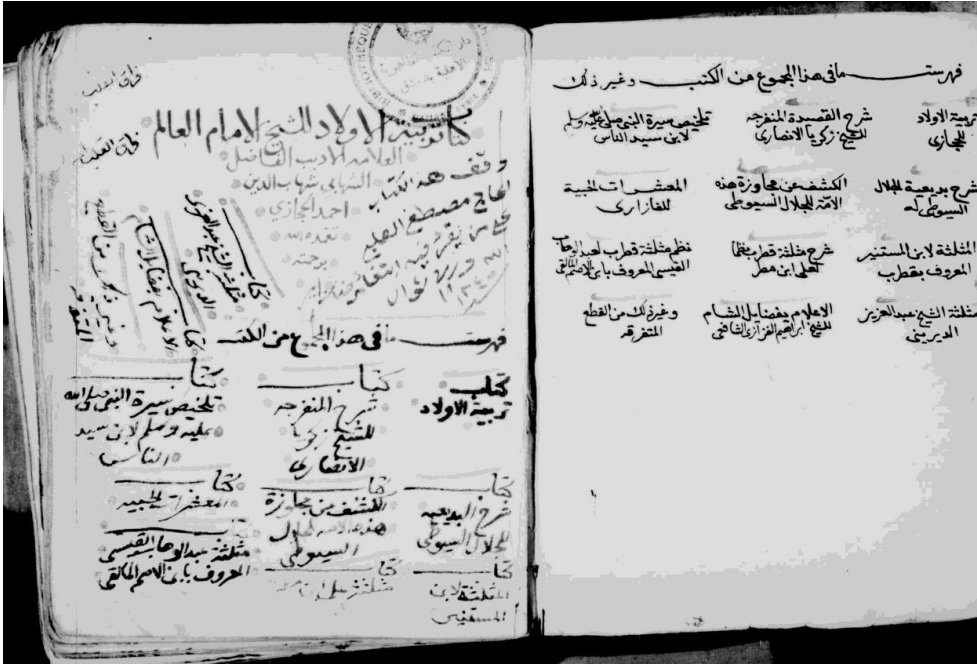 فهرست ما فى هذا المجموع من الكتب وغير ذلك
تربية الاولاد للحجازى
شرح القصيدة المنفرجه للشيخ زكريا الانصارى
تلخيص سيرة النبى صلى الله عليه وسلم لابن سيد الناس
شرح بديعية للجلال السيوطى له
الكشف عن مجاوزة هذه الامة للجلال السيوطى
المعشرات الحبية للفازازى
المثلثة لابن المستنير المعروف بقطرب
شرح مثلثة قطرب
نظم مثلثة قطرب لعبد الوهاب القيسى المعروف بابن الاصم المالقى
مثلثة الشيخ عبد العزيز الديرينى
الاعلام بفضايل الشام للشيخ ابراهيم الفزازى الشافعى
وغير ذلك من القطع المتفرقه
كتاب تربية الاولاد للشيخ الامام العالم
العلامه الاديب الفاضل
الشهابى شهاب الدين
احمد الحجازي
تغمده الله
برحمته
وقف هذا الكتاب
الحاج مصطفى
كتاب مثلثة الشيخ عبد العزيز
كتاب الاعلام بفضايل الشام
وغير ذلك من القطع المتفرقه
فهرست ما فى هذا المجموع من الكتب
كتاب تربية الاولاد
كتاب شرح المنفرجه للشيخ زكريا الانصارى
كتاب تلخيص سيرة النبى صلى الله عليه وسلم لابن سيد الناس
كتاب شرح البديعيه للجلال السيوطى
كتاب الكشف عن مجاوزة هذه الامه للجلال السيوطى
كتاب المعشرات الحبيه
كتاب المثلثة لابن المستنير
كتاب مثلثة
كتاب مثلثة عبد الوهاب القيسى المعروف بابن الاصم المالقى